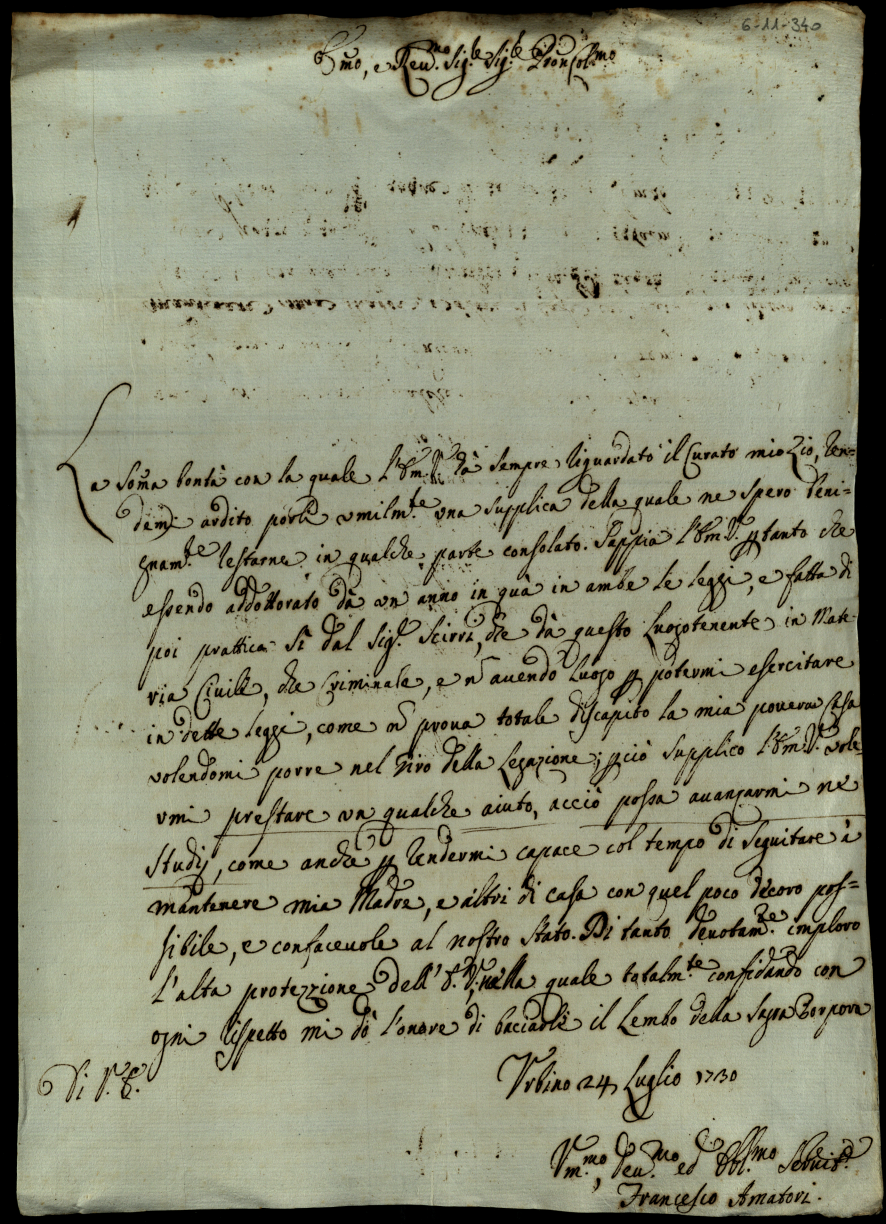 6-11-340
Emo, e Reu.mo Sig.re Sig.re Pron Coll.mo
La Somã bontà con la quale l'Em. V. hà sempre riguardato il Curato mio Zio, ren=
demi ardito porli vmilm.te vna supplica della quale ne spero beni=
gnam.te restarne in qualche parte consolato. Sappia l'Em. V. ꝑtanto che
essendo addottorato dà vn' anno in quà in ambe le leggi, e fatta di
poi prattica sì dal Sig.r Scirri, che dà questo Luogotenente in Mate
ria Ciuile, che Criminale, e nõ auendo Luogo ꝑ potermi esercitare
in dette leggi, come nõ proua totale discapito la mia pouera Casa
volendomi porre nel Giro della Legazione; ꝑciò supplico l'Em. V. vole=
rmi prestare vn qualche aiuto, acciò possa auanzarmi ne
Studij, come anche ꝑ rendermi capace col tempo di seguitare à
mantenere mia Madre, e altri di casa con quel poco decoro pos=
sibile, e confaceuole al nostro stato. Di tanto deuotam.te imploro
l'alta protezzione dell' E. V. nella quale totalm.te confidando con
ogni rispetto mi dò l'onore di bacciarle il Lembo della Sagra Porpora
Di V. E.
Vrbino 24 Luglio 1730
Vm.mo, deu.mo ed Obl.mo Seruit.e
Francesco Amatori.